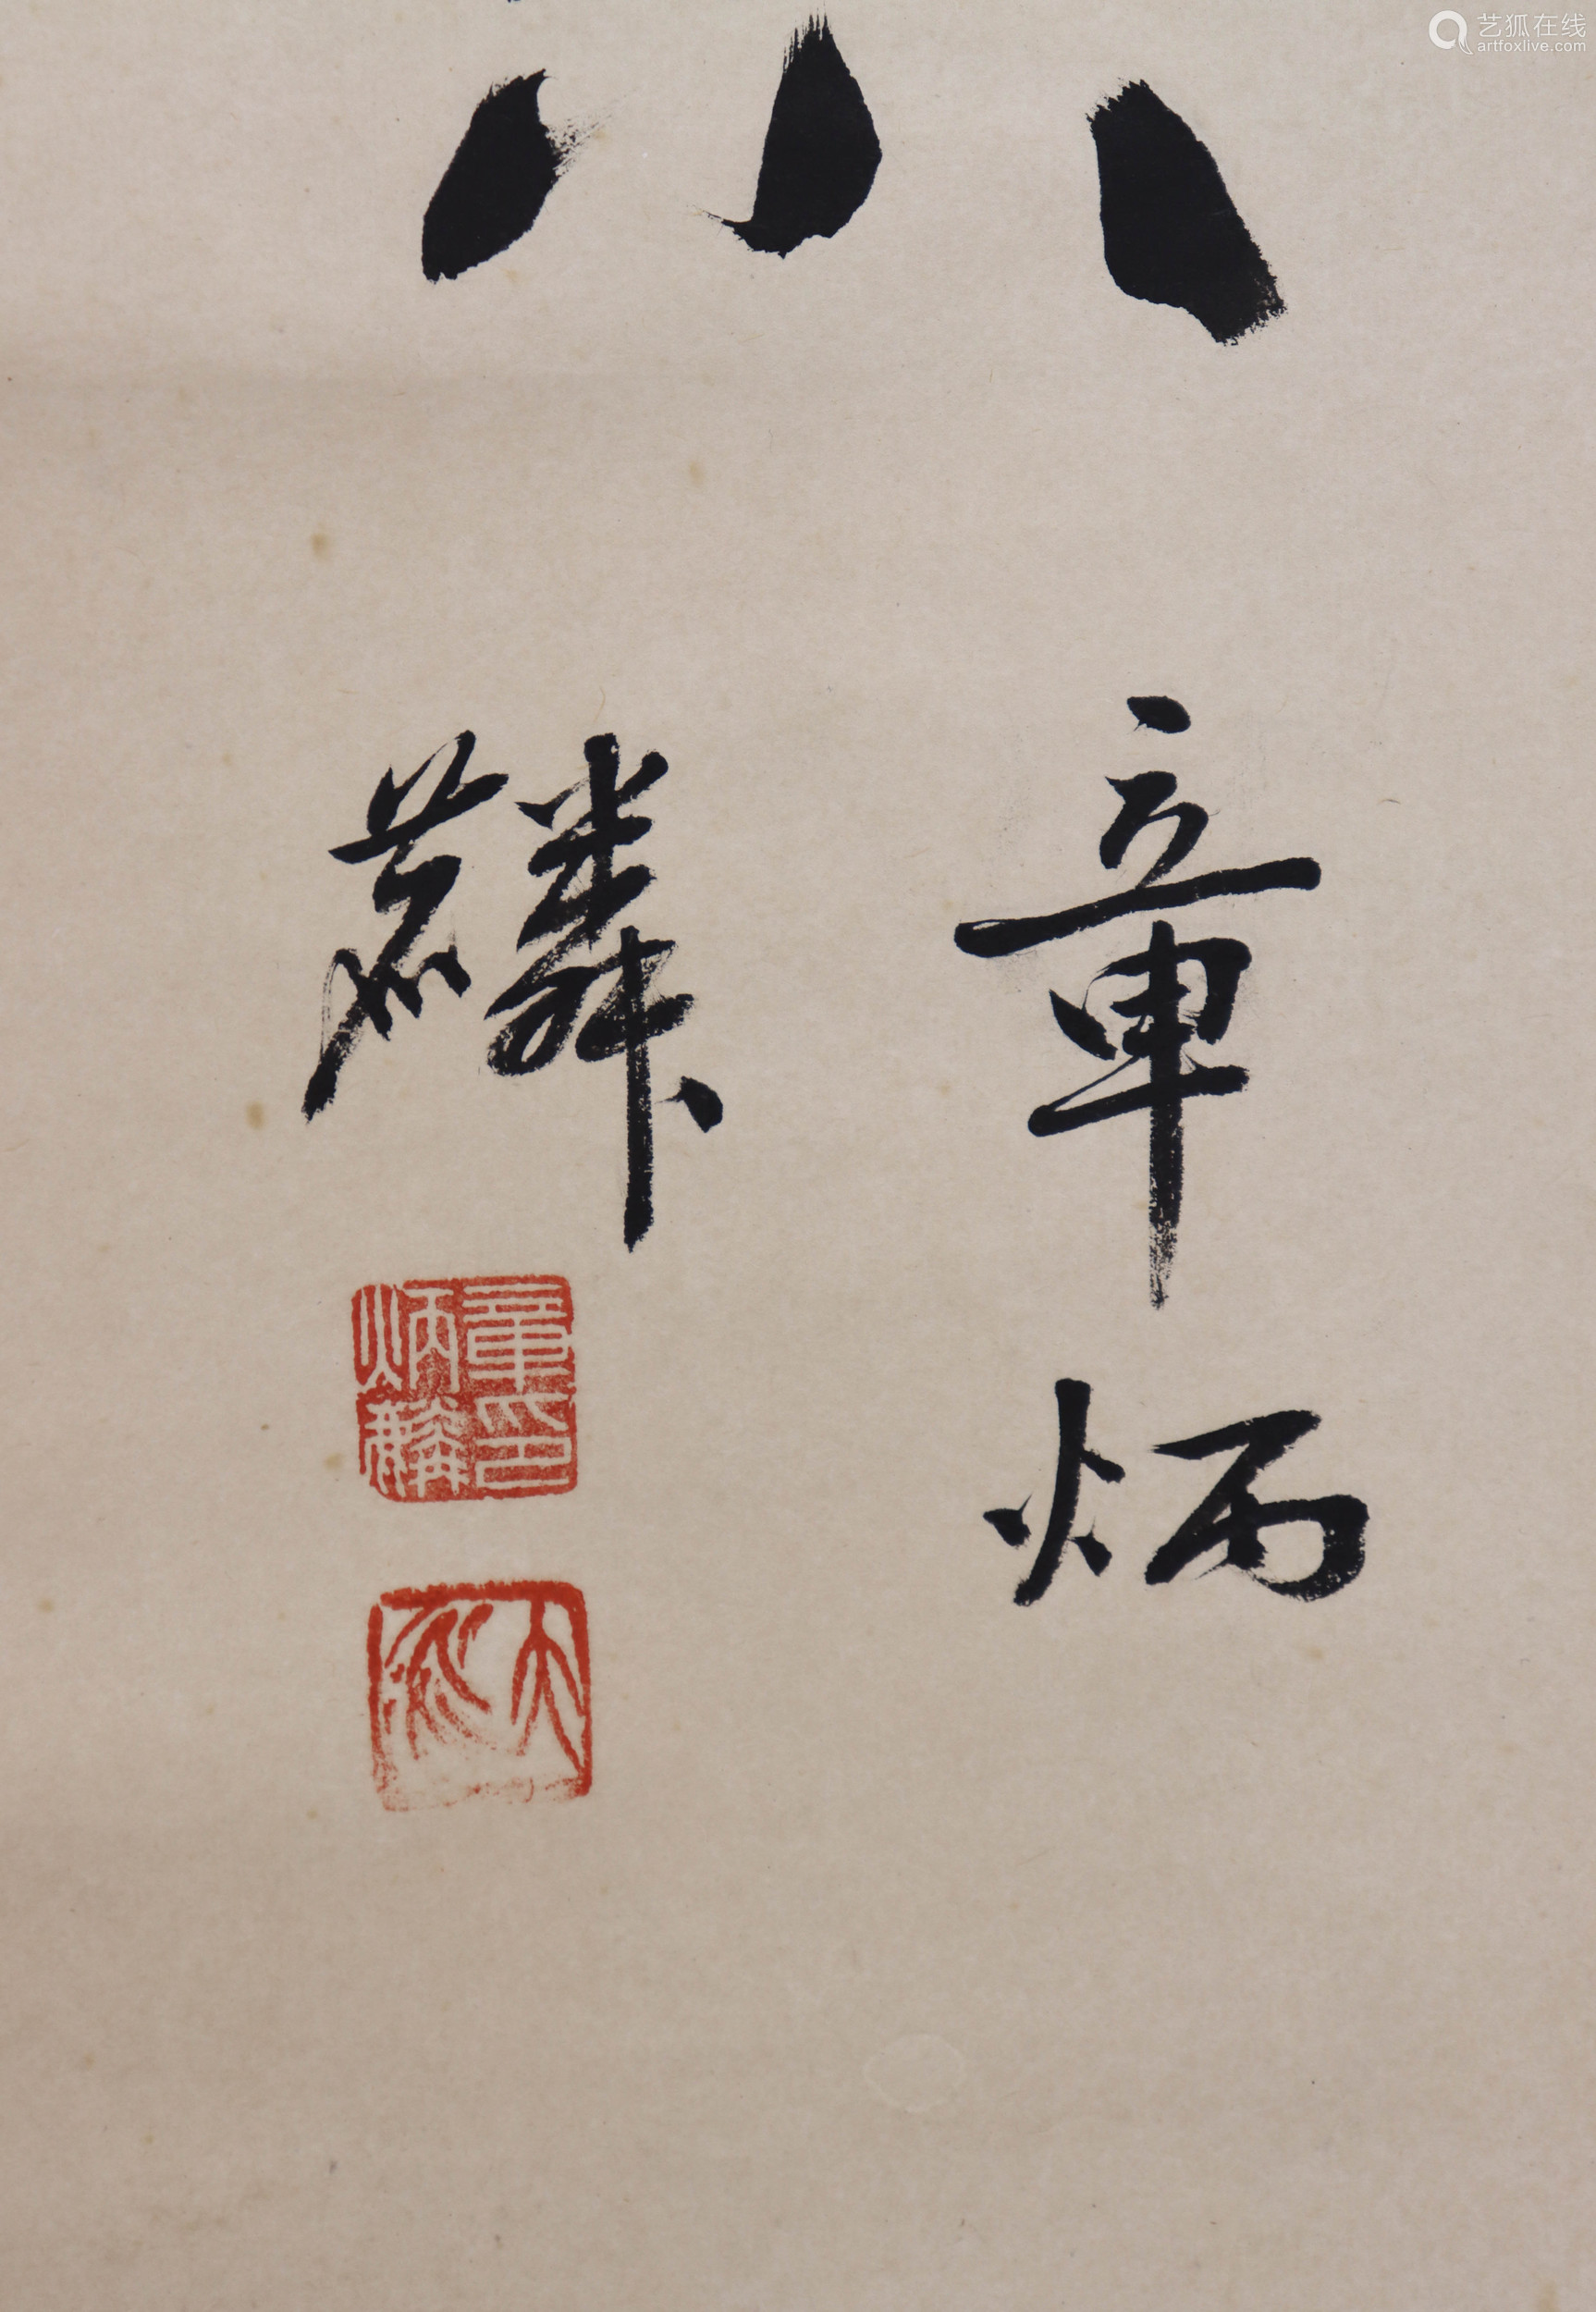 艺狐在线
artfoxlive.com
章炳
麟
章炳麟印
太炎